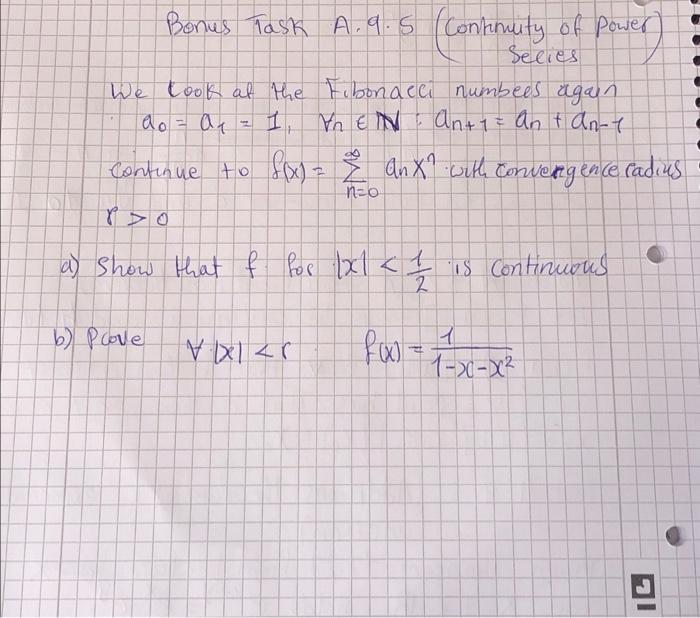 Bonus Task A.9.5 (Continuity of Power Series)
We look at the Fibonacci numbers again
a₀ = a₁ = 1, ∀n ∈ ℕ : aₙ₊₁ = aₙ + aₙ₋₁
Continue to f(x) = ∑_{n=0}^{∞} aₙxⁿ with convergence radius
r > 0
a) Show that f for |x| < 1/2 is continuous
b) Prove ∀ |x| < r f(x) = 1/(1-x-x²)